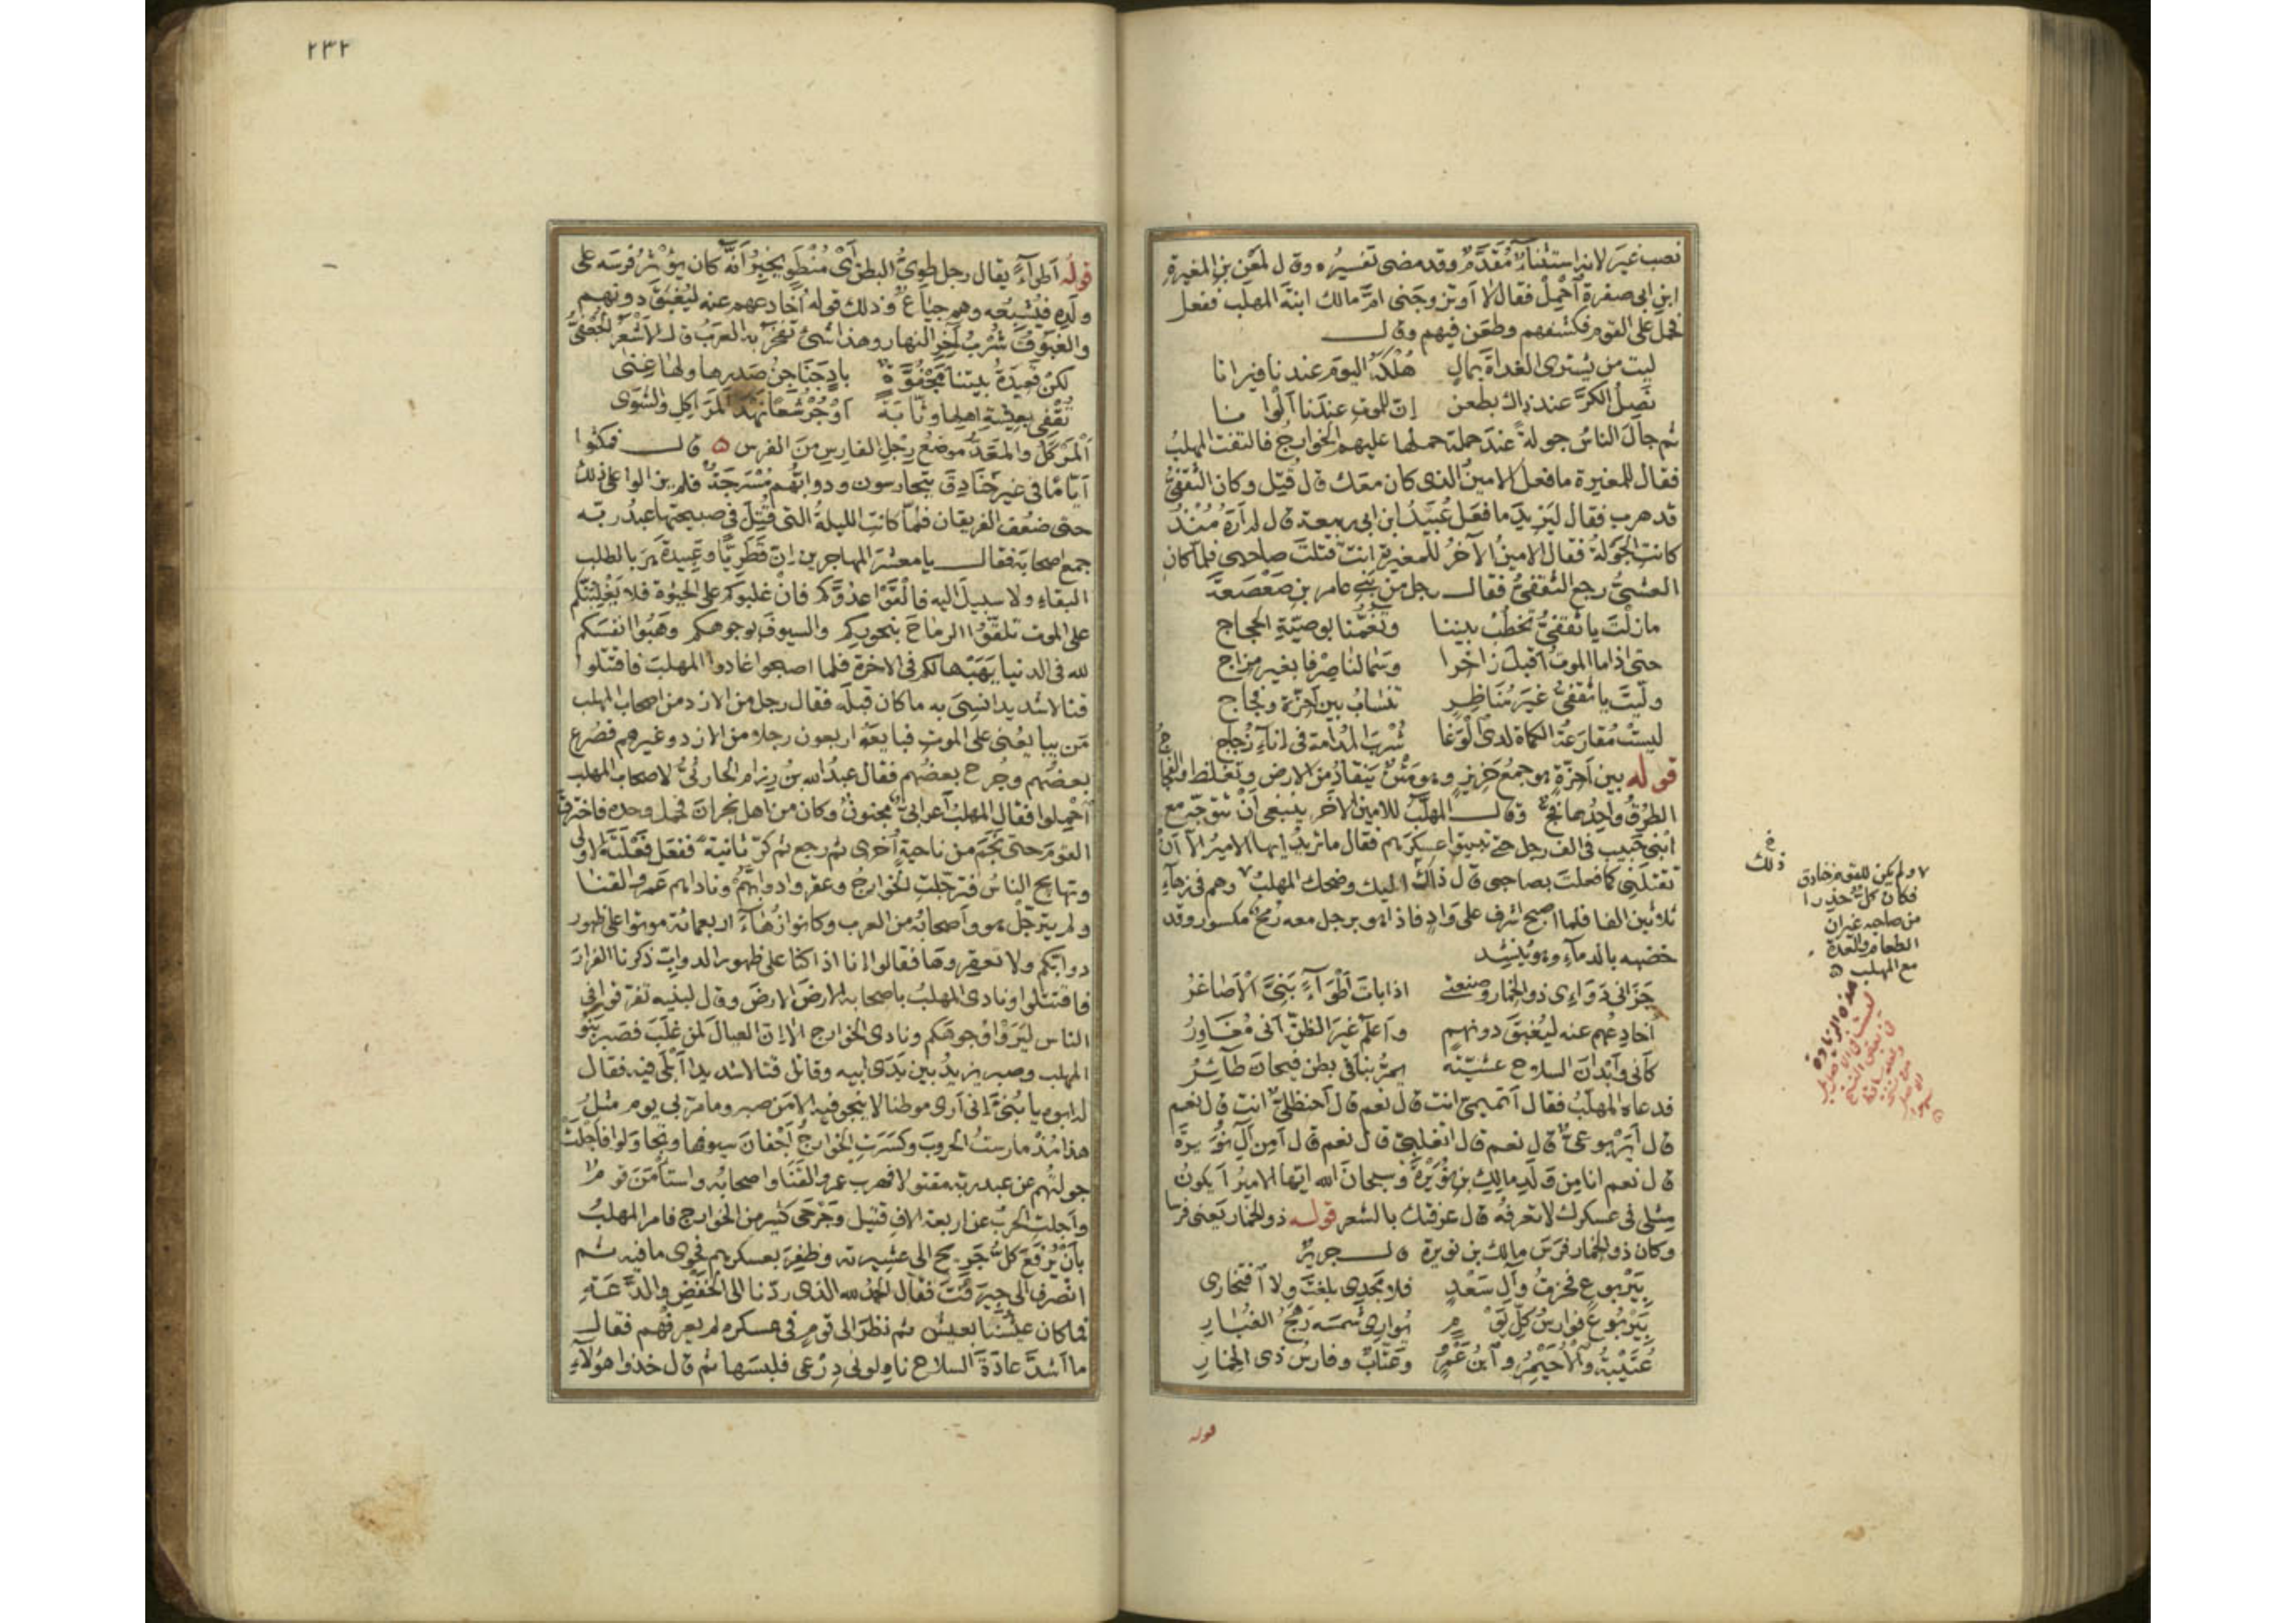 نصب غير لانه استثناءٌ مُقدَّمٌ وقد مضى تفسيره وقال لمعن بن المغيرة
ابن ابى صفرة احْمِلْ فقال لا او تزوجنى امَّ مالك ابنةَ المهلب ففعل
فحمل على القوم فكشفهم وطعن فيهم وقال
ليت من يشترى الغداةَ بمالٍ هُلْكَهُ اليوم عندنا فيرانا
نَصِلُ الكرَّ عند ذاك بطعن إنّ للموت عندنا الْوانا
ثم جالَ الناسُ جولةً عند حملة حملها عليهم الخوارجُ فالتفت المهلبُ
فقال للمغيرة ما فعل الامينُ الذى كان معك قال قُتِل وكان الثقفىُّ
قد هرب فقال ليزيدَ ما فعل عُبَيْدُ ابن ابى ربيعة قال لم ارَهُ مُنْذُ
كانت الجَوْلةُ فقال الامينُ الآخرُ للمغيرة انتَ قتلتَ صاحبى فلمّا كان
العشىُّ رجع الثقفىُّ فقال رجل من بنى عامر بن صَعْصَعَةَ
ما زلتَ يا ثقفىُّ تخطُبُ بيننا وتَغُمُّنا بوصيّةِ الحجاج
حتى اذا ما الموتُ اقبلَ زاخرًا وسما لنا صِرْفا بغير مزاج
ولّيتَ يا ثقفىُّ غيرَ مُنَاظِرٍ تنسابُ بين احِزّةٍ وفجاج
ليستْ مُقارعَةُ الكماة لدى الْوَغا شُرْبَ المُدامة فى اناءِ زُجاج
قوله بين احِزّةٍ هو جمعُ حَزيز وهو مَتْنٌ يَنقادُ من الارض ويَغلظ والفجاج
الطُرُقُ واحِدُها فجٌّ وقال المهلّبُ للامين الآخر ينبغى أنْ تتوجّه مع
ابْنى حبيب فى الف رجل حتى تبيتوا عسكرَهم فقال ما تريدُ ايها الامير الّا أنْ
تقتلَنِى كما فعلتَ بصاحبى قال ذاكَ اليك وضحك المهلبُ ٧ وهم فى زهاءِ
ثلاثين الفا فلما اصبح اشرف على وادٍ فاذا هو برجل معه رُمحٌ مكسور وقد
خضبه بالدماءِ وهو يُنشِد
جَزَانى دَوَاءِى ذو الخِمار وصنعتى اذا باتَ اَطْوَاءً بَنِىَّ الْأَصَاغرُ
اخادِعُهم عنه ليُغبَقَ دونهم واَعلمُ غيرَ الظنّ انّى مُغَاوِرُ
كأنّى وأَبْدَانَ السلاح عشيّتَه يمرُّ بنا فى بطن فيحانَ طَآئِرُ
فدعاه المهلّبُ فقال أتميمىٌّ انت قال نعم قال أحنظلىٌّ انت قال نعم
قال أيَرْبوعىٌّ قال نعم قال اثعلبىٌّ قال نعم قال أمِن آلِ نُوَيرةَ
قال نعم انا مِن وَلَدِ مالِكِ بنِ نُوَيْرةَ وسبحانَ الله ايّها الاميرُ أيكونُ
مثلى فى عسكرك لا تعرفُه قال عرفتك بالشعر قوله ذو الخمار يَعنى فرسا
وكان ذو الخمار فَرَسَ مالِك بن نويرة قال جريرٌ
بيَرْبوعٍ فَخرتُ وآلِ سَعْدٍ فلا مجدى بلغتَ ولا افتخارى
بيَرْبُوعٍ فوارسُ كلِّ يَوْمٍ يُوارى شمسَه رَهَجُ الغُبَارِ
عُتَيْبَةُ والْأُحَيْمِرُ وابنُ عَمْرٍو وعَتّابٌ وفارسُ ذى الخِمارِ
قوله
ذلك
٧ ولم يكن للقوم خنادق
فكان كلٌّ حذرا
من صاحبه غير ان
الطعام والعدة
مع المهلب
هذه الزيادة
٢٣٢
قولُه اَطواءً يقال رجل طوِىُّ البطن أىْ مُنْطَوٍ يخبِرُ أنَّه كان يُؤْثرُ فرسَه على
ولَدِه فيُشبِعُه وهم جياعٌ وذلك قوله أخادعهم عنه ليُغْبَقَ دونهم
والغَبوقُ شُرْبُ آخِرِ النهار وهذا شىءٌ تفخرُ به العَرَبُ قال الاَشْعَرُ الجُعفىُّ
لكنْ قعيدَةُ بيتنا مَجْفُوَّةٌ بادٍ جَنَاجِنُ صَدرِها ولها غِنَى
تُقْفِى بعيشةِ اهلِها وثّابَةً أوْ جُرْشُعًا نَهْدَ المَرَاكِلِ والشَّوَى
اَلْمَرْكَلُ والمَعَدُّ موضعُ رِجْلِ الفارِسِ مِنَ الفَرس ۞ قال فمكثوا
أيّامًا فى غير خَنَادِقَ يتحارسون ودوابُّهم مُسْرَجَةٌ فلم يزالوا على ذلك
حتى ضعُف الفريقان فلمّا كانتِ الليلةُ التى قُتِلَ فى صبيحتها عبدُ ربّه
جمع اصحابَه فقال يا معشرَ المهاجرين إنّ قَطَرِيًّا وعَبيدةَ هَرَبا لطلب
البقاء ولا سبيلَ اليه فالْقَوْا عدُوَّكم فانْ غلبوكم على الحيٰوة فلا يَغْلِبُنَّكم
على الموت تلقَّوُا الرماحَ بنحوركم والسيوفَ بوجوهكم وهَبُوا انفسَكم
لله فى الدنيا يَهَبْها لكم فى الاخرة فلما اصبحوا غادوا المهلبَ فاقتَتلوا
قتالا شديدا نُسِىَ به ما كان قبلَه فقال رجل من الازد من اصحاب المهلب
مَن يبايعُنى على الموت فبايعَهُ اربعون رجلا من الازد وغيرهم فصُرِعَ
بعضُهم وجُرِح بعضُهم فقال عبدُ الله بنُ رِزام الحارثىُّ لاصحاب المهلب
اُحْمِلوا فقال المهلبُ اَعرابىٌّ مجنونٌ وكان من اهل نجران فحمل وحده فاخترقَ
القومَ حتى نَجَمَ من ناحيةٍ اُخرى ثم رجع ثم كرّ ثانيةً ففعل فَعْلَتَهُ الاولى
وتهايج الناسُ فترجّلتِ الخوارجُ وعقروا دوابَّهُم وناداهم عَمرو القنا
ولم يترجّلْ هو واَصحابُه من العرب وكانوا زُهَاءَ اربعمائة موتوا على ظهور
دوابّكم ولا تَعقِروها فقالوا إنا اذا كنّا على ظهور الدوابّ ذكرنا الفرار
فاقتتلوا ونادى المهلبُ باصحابه الارضَ الارضَ وقال لبنيه تفرّقوا فى
الناس ليَرَوْا وجوهَكم ونادى الخوارج ألا إنّ العيالَ لمن غلَبَ فصَبر بَنُو
المهلب وصبر يزيدُ بين يَدَى ابيه وقاتَل قتالا شديدا اَبْلَى فيه فقال
له ابوه يا بُنَىَّ إنى أرى موطنا لا ينجو فيه الّا مَن صبر وما مرّ بى يوم مثلُ
هذا مُنْذُ مارستُ الحُروبَ وكسَرَتِ الخوارجُ اَجْفانَ سيوفها وتجاولوا فأجلَتْ
جولتُهم عن عبد ربّه مقتولا فهرب عمرو القَنَا واصحابُه واستأمَنَ قومٌ
واَجلتِ الحربُ عن اربعة الافِ قتيل وجَرْحَى كثير من الخوارج فامر المهلبُ
بأنْ يُرْفَعَ كلُّ جَريحٍ الى عشيرته وظفِرَ بعسكرهم فحوى ما فيه ثم
انصرف الى جِيرَفْتَ فقال الحمدُ لله الذى ردّنا الى الخَفْضِ والدَّعَةِ
فما كان عيشُنا بعيش ثم نظرَ الى قوم فى عسكره لم يعرفْهم فقال
ما اَشدَّ عادَةَ السلاح ناوِلونى دِرْعى فلبسَها ثم قال خذوا هؤلآءِ